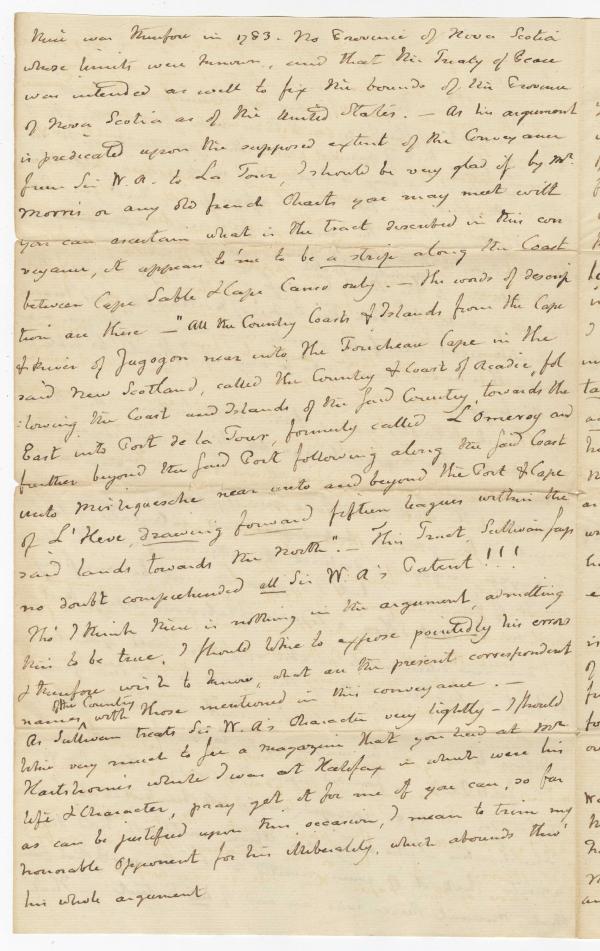 there was therefore in 1783. No Province of Nova Scotia
whose limits were known, and that the Treaty of Peace
was intended as well to fix the bounds of the Province
of Nova Scotia as of the United States. — As his argument
is predicated upon the supposed extent of the Conveyance
from Sir W. A. to La Tour, I should be very glad if by Mr.
Morris or any old french Charts you may meet with
you can ascertain what is the tract described in this con
veyance, it appears to me to be a strip along the Coast
between Cape Sable & Cape Canso only. — The words of descrip
tion are these — "All the Country Coasts & Islands from the Cape
& River of Jugogon near unto the Fourcheau Cape in the
said New Scotland, called the Country & Coast of Acadie, fol
:lowing the Coast and Islands of the said Country, towards the
East unto Port de la Tour, formerly called L'Omeroy and
further beyond the said Port following along the said Coast
unto Mirliquesche near unto and beyond the Port & Cape
of L'Heve, drawing forward fifteen leagues within the
said lands towards the North". — This Tract, Sullivan says
no doubt comprehended all Sir W. A's Patent!!!
Tho' I think there is nothing in the argument, admitting
this to be true, I should like to expose pointedly his errors
& therefore wish to know, what are the present correspondent
names of the Country with those mentioned in this conveyance. —
As Sullivan treats Sir W. A's Character very lightly — I should
like very much to see a magazine that you had at Mr.
Hartshornes while I was at Halifax in which were his
life & Character, pray get it for me if you can, so far
as can be justified upon this occasion, I mean to trim my
honorable Opponent for his illiberality, which abounds thro'
his whole argument